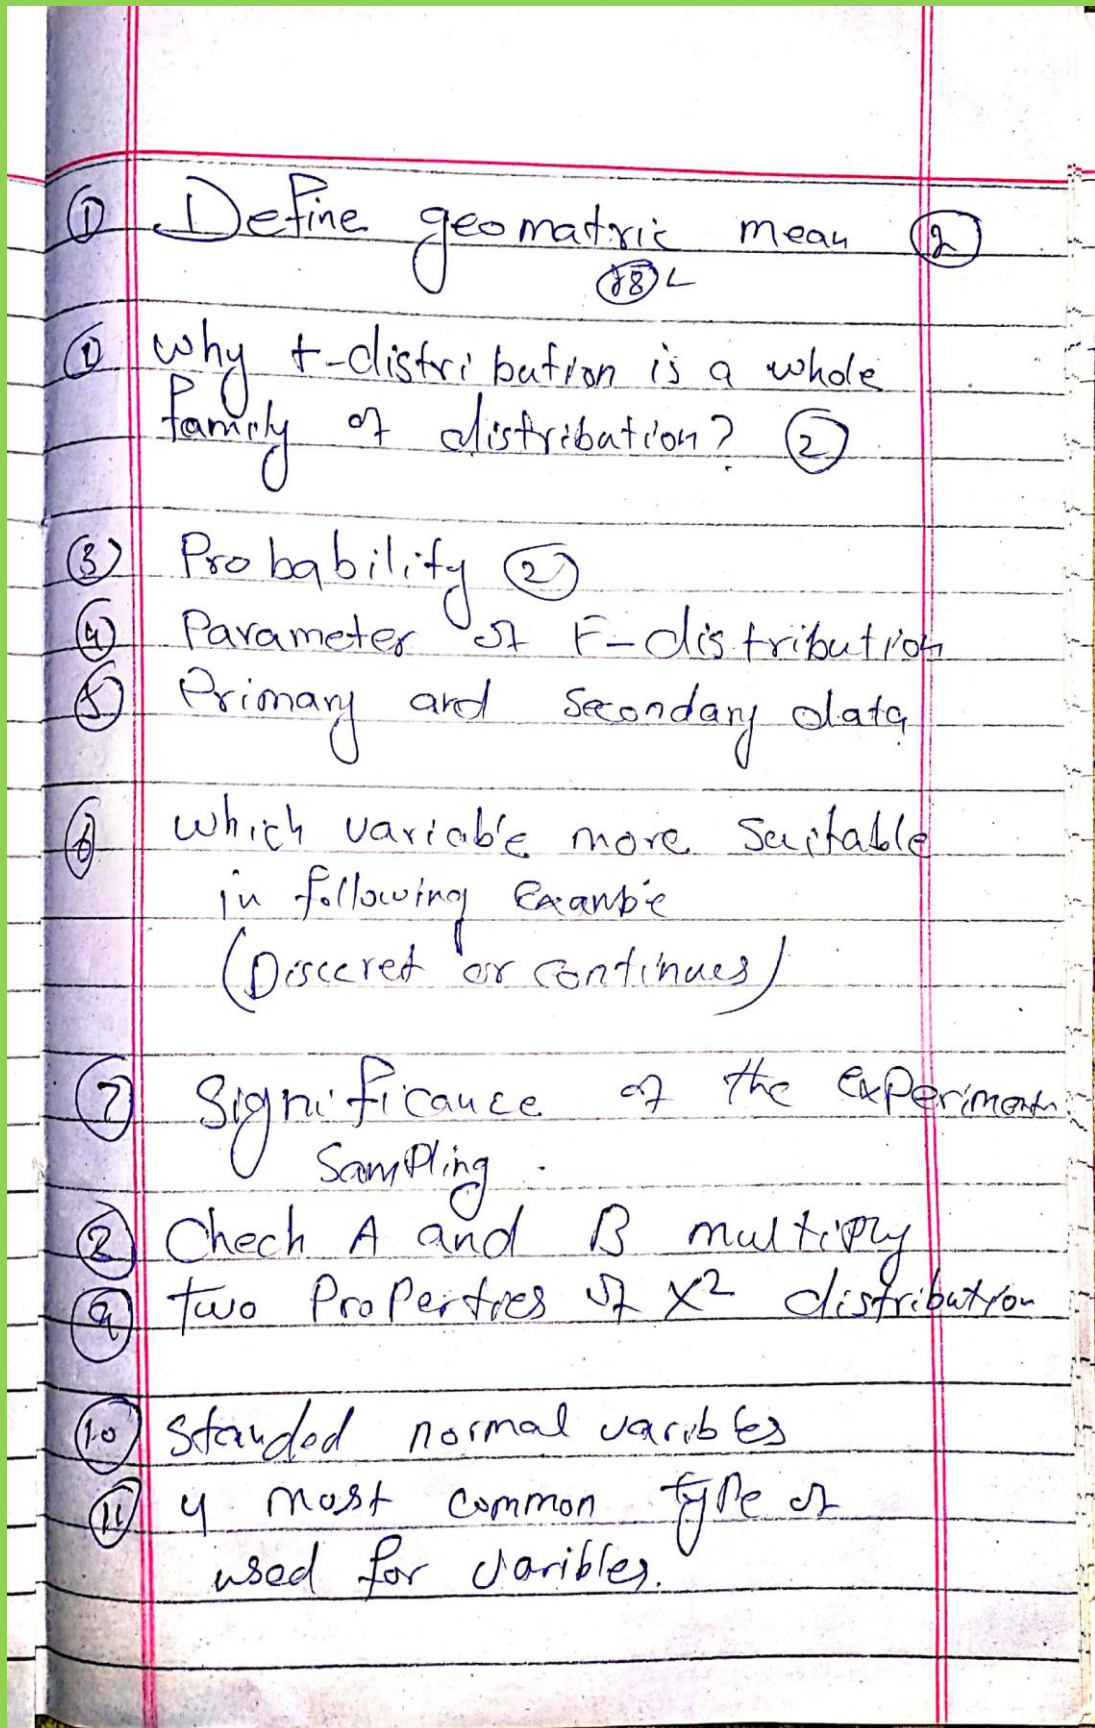 ① Define geomatric mean ②
⑱ L
① why t-distribution is a whole
family of distribution? ②
③ Probability ②
④ Parameter of F-distribution
⑤ Primary and Secondary data
⑥ which variable more Suitable
in following
(Disceret or continues)
⑦ Significance of the experiment
Sampling.
⑧ Chech A and B multiply
⑨ two Properties of X² distribution
⑩ standed normal varibles
⑪ 4 most common type of
used for varibles.